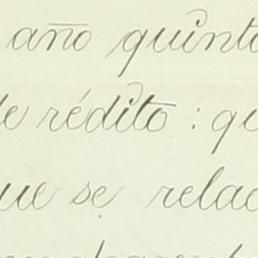 año quinto
de rédito: qu
que se relac